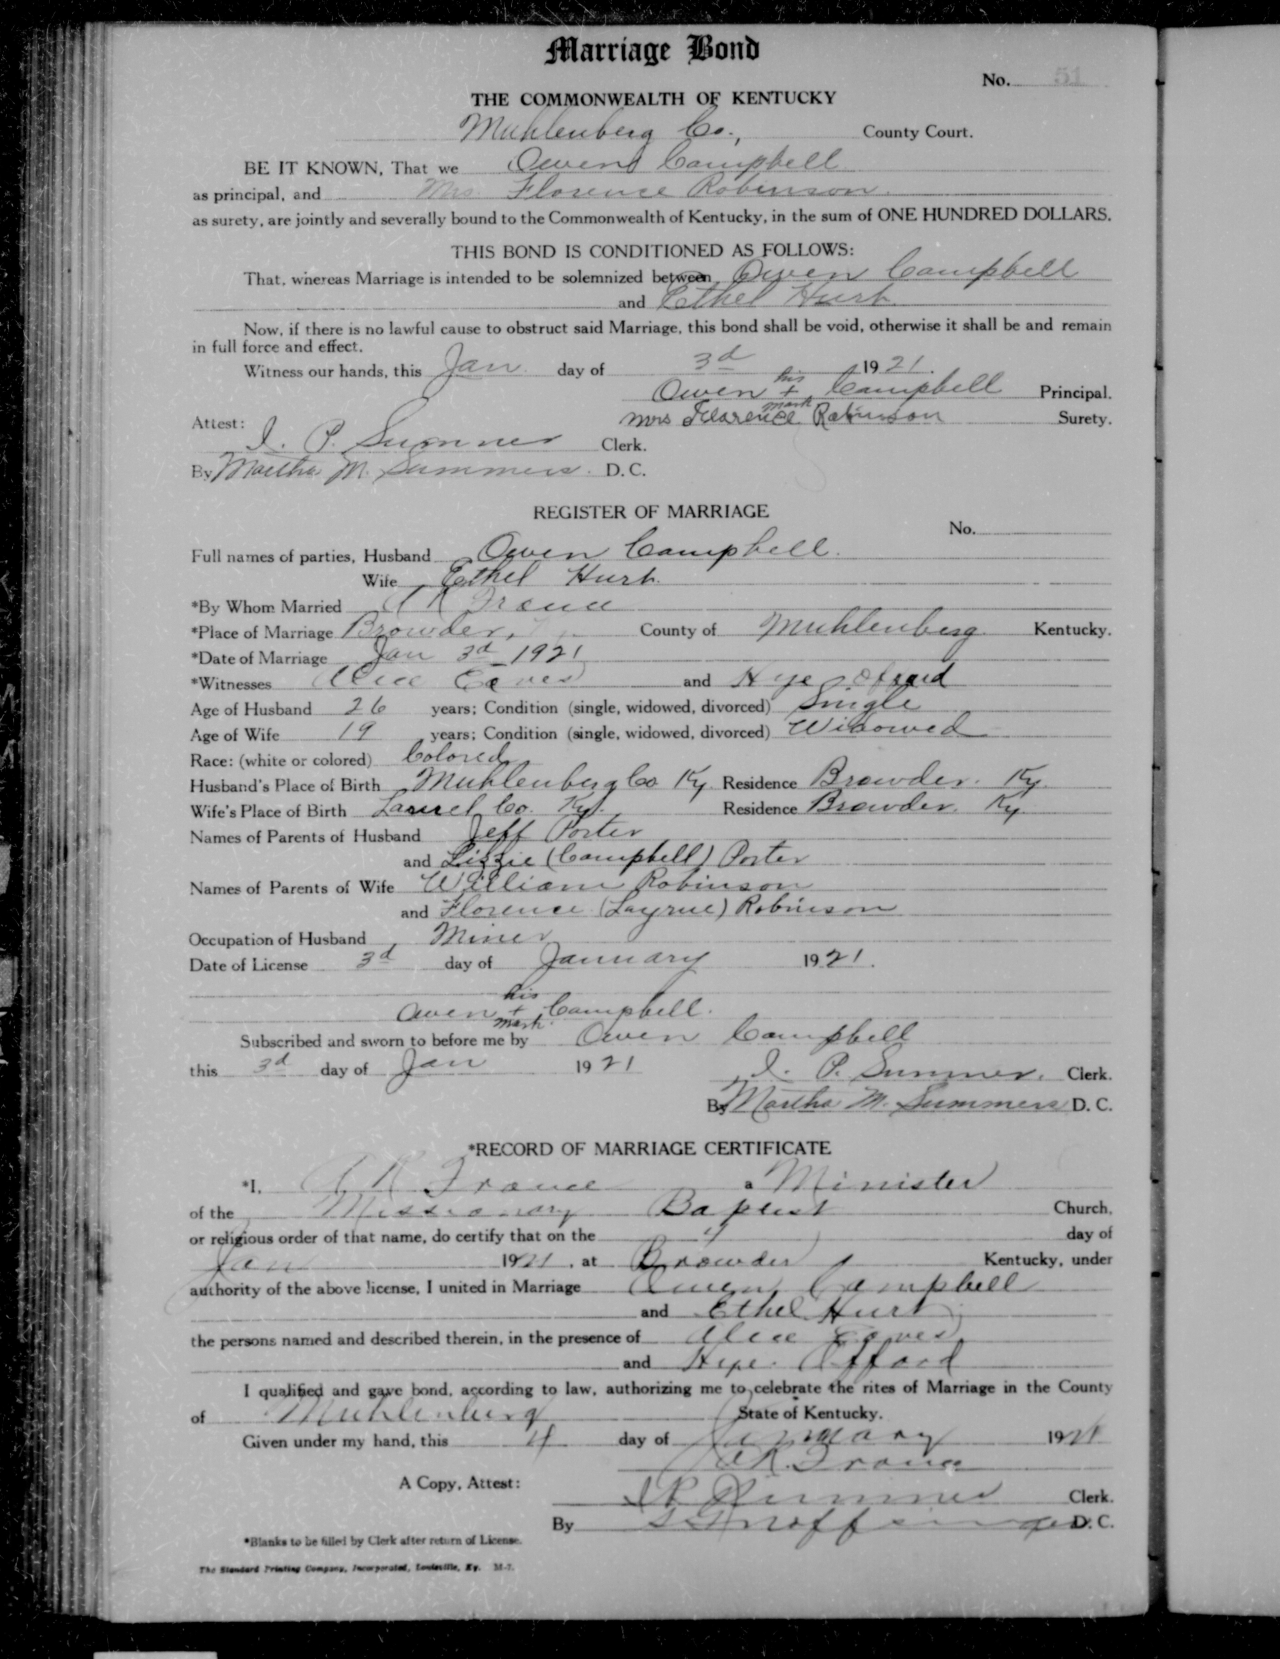 Marriage Bond
No. 51
THE COMMONWEALTH OF KENTUCKY
Muhlenberg Co., County Court.
BE IT KNOWN, That we Owen Campbell
as principal, and Mrs. Florence Robinson
as surety, are jointly and severally bound to the Commonwealth of Kentucky, in the sum of ONE HUNDRED DOLLARS.
THIS BOND IS CONDITIONED AS FOLLOWS:
That, whereas Marriage is intended to be solemnized between Owen Campbell
and Ethel Hurt
Now, if there is no lawful cause to obstruct said Marriage, this bond shall be void, otherwise it shall be and remain
in full force and effect.
Witness our hands, this Jan day of 3d 1921.
Owen his + mark Campbell Principal.
Mrs Florence Robinson Surety.
Attest:
I. P. Sumner Clerk.
By Martha M. Summers D. C.
REGISTER OF MARRIAGE
No.
Full names of parties, Husband Owen Campbell.
Wife Ethel Hurt.
*By Whom Married A R France
*Place of Marriage Browder, County of Muhlenberg Kentucky.
*Date of Marriage Jan 3d 1921
*Witnesses Alice Eaves and Hype Offord
Age of Husband 26 years; Condition (single, widowed, divorced) Single
Age of Wife 19 years; Condition (single, widowed, divorced) Widowed
Race: (white or colored) Colored
Husband's Place of Birth Muhlenberg Co Ky. Residence Browder. Ky.
Wife's Place of Birth Laurel Co. Ky. Residence Browder. Ky
Names of Parents of Husband Jeff Porter
and Lizzie (Campbell) Porter
Names of Parents of Wife William Robinson
and Florence Robinson
Occupation of Husband Miner
Date of License 3d day of January 1921.
Owen his + mark Campbell.
Subscribed and sworn to before me by Owen Campbell
this 3d day of Jan 1921
I. P. Sumner. Clerk.
By Martha M. Summers D. C.
*RECORD OF MARRIAGE CERTIFICATE
*I, A R France a Minister
of the Missionary Baptist Church,
or religious order of that name, do certify that on the 4 day of
Jan 1921, at Browder Kentucky, under
authority of the above license, I united in Marriage Owen Campbell
and Ethel Hurt
the persons named and described therein, in the presence of Alice Eaves
and Hype Offord
I qualified and gave bond, according to law, authorizing me to celebrate the rites of Marriage in the County
of Muhlenburg State of Kentucky.
Given under my hand, this 4 day of January 1921
A R. France
A Copy, Attest:
I P Sumner Clerk.
By D. C.
*Blanks to be filled by Clerk after return of License.
The Standard Printing Company, Incorporated, Louisville, Ky. M-7.